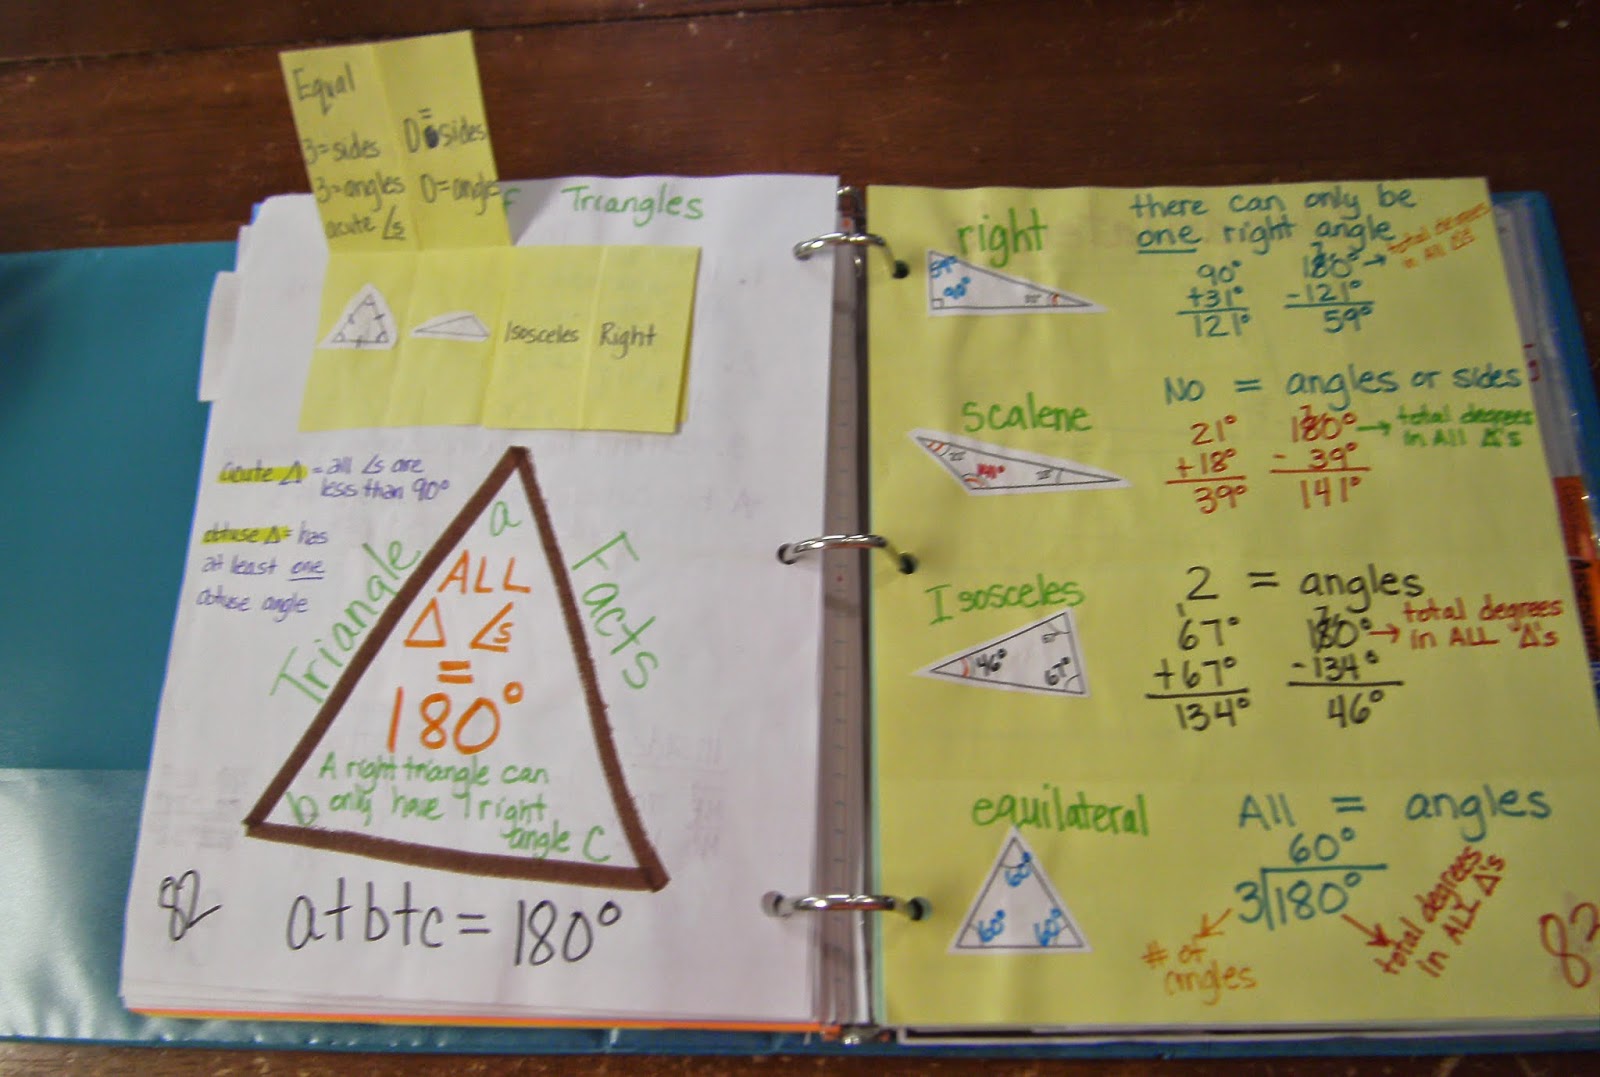 Equal
3=sides
3=angles
acute ∠s
0=sides
0=angles
Triangles
Isosceles
Right
acute Δ = all ∠s are
less than 90°
obtuse Δ= has
at least one
obtuse angle
Triangle
Facts
a
ALL
Δ ∠s
=
180°
A right triangle can
only have 1 right
angle
b
c
82
a+b+c = 180°
right
there can only be
one right angle
59°
90°
90°
+31°
121°
180° → total degrees
in All Δ's
-121°
59°
Scalene
No = angles or sides
141°
21°
+18°
39°
180° → total degrees
in All Δ's
- 39°
141°
Isosceles
2 = angles
46°
67°
67°
1
67°
+67°
134°
7
180° → total degrees
in ALL Δ's
-134°
46°
equilateral
All = angles
60°
60°
60°
60°
3 180°
# of
angles
total degrees
in ALL Δ's
82